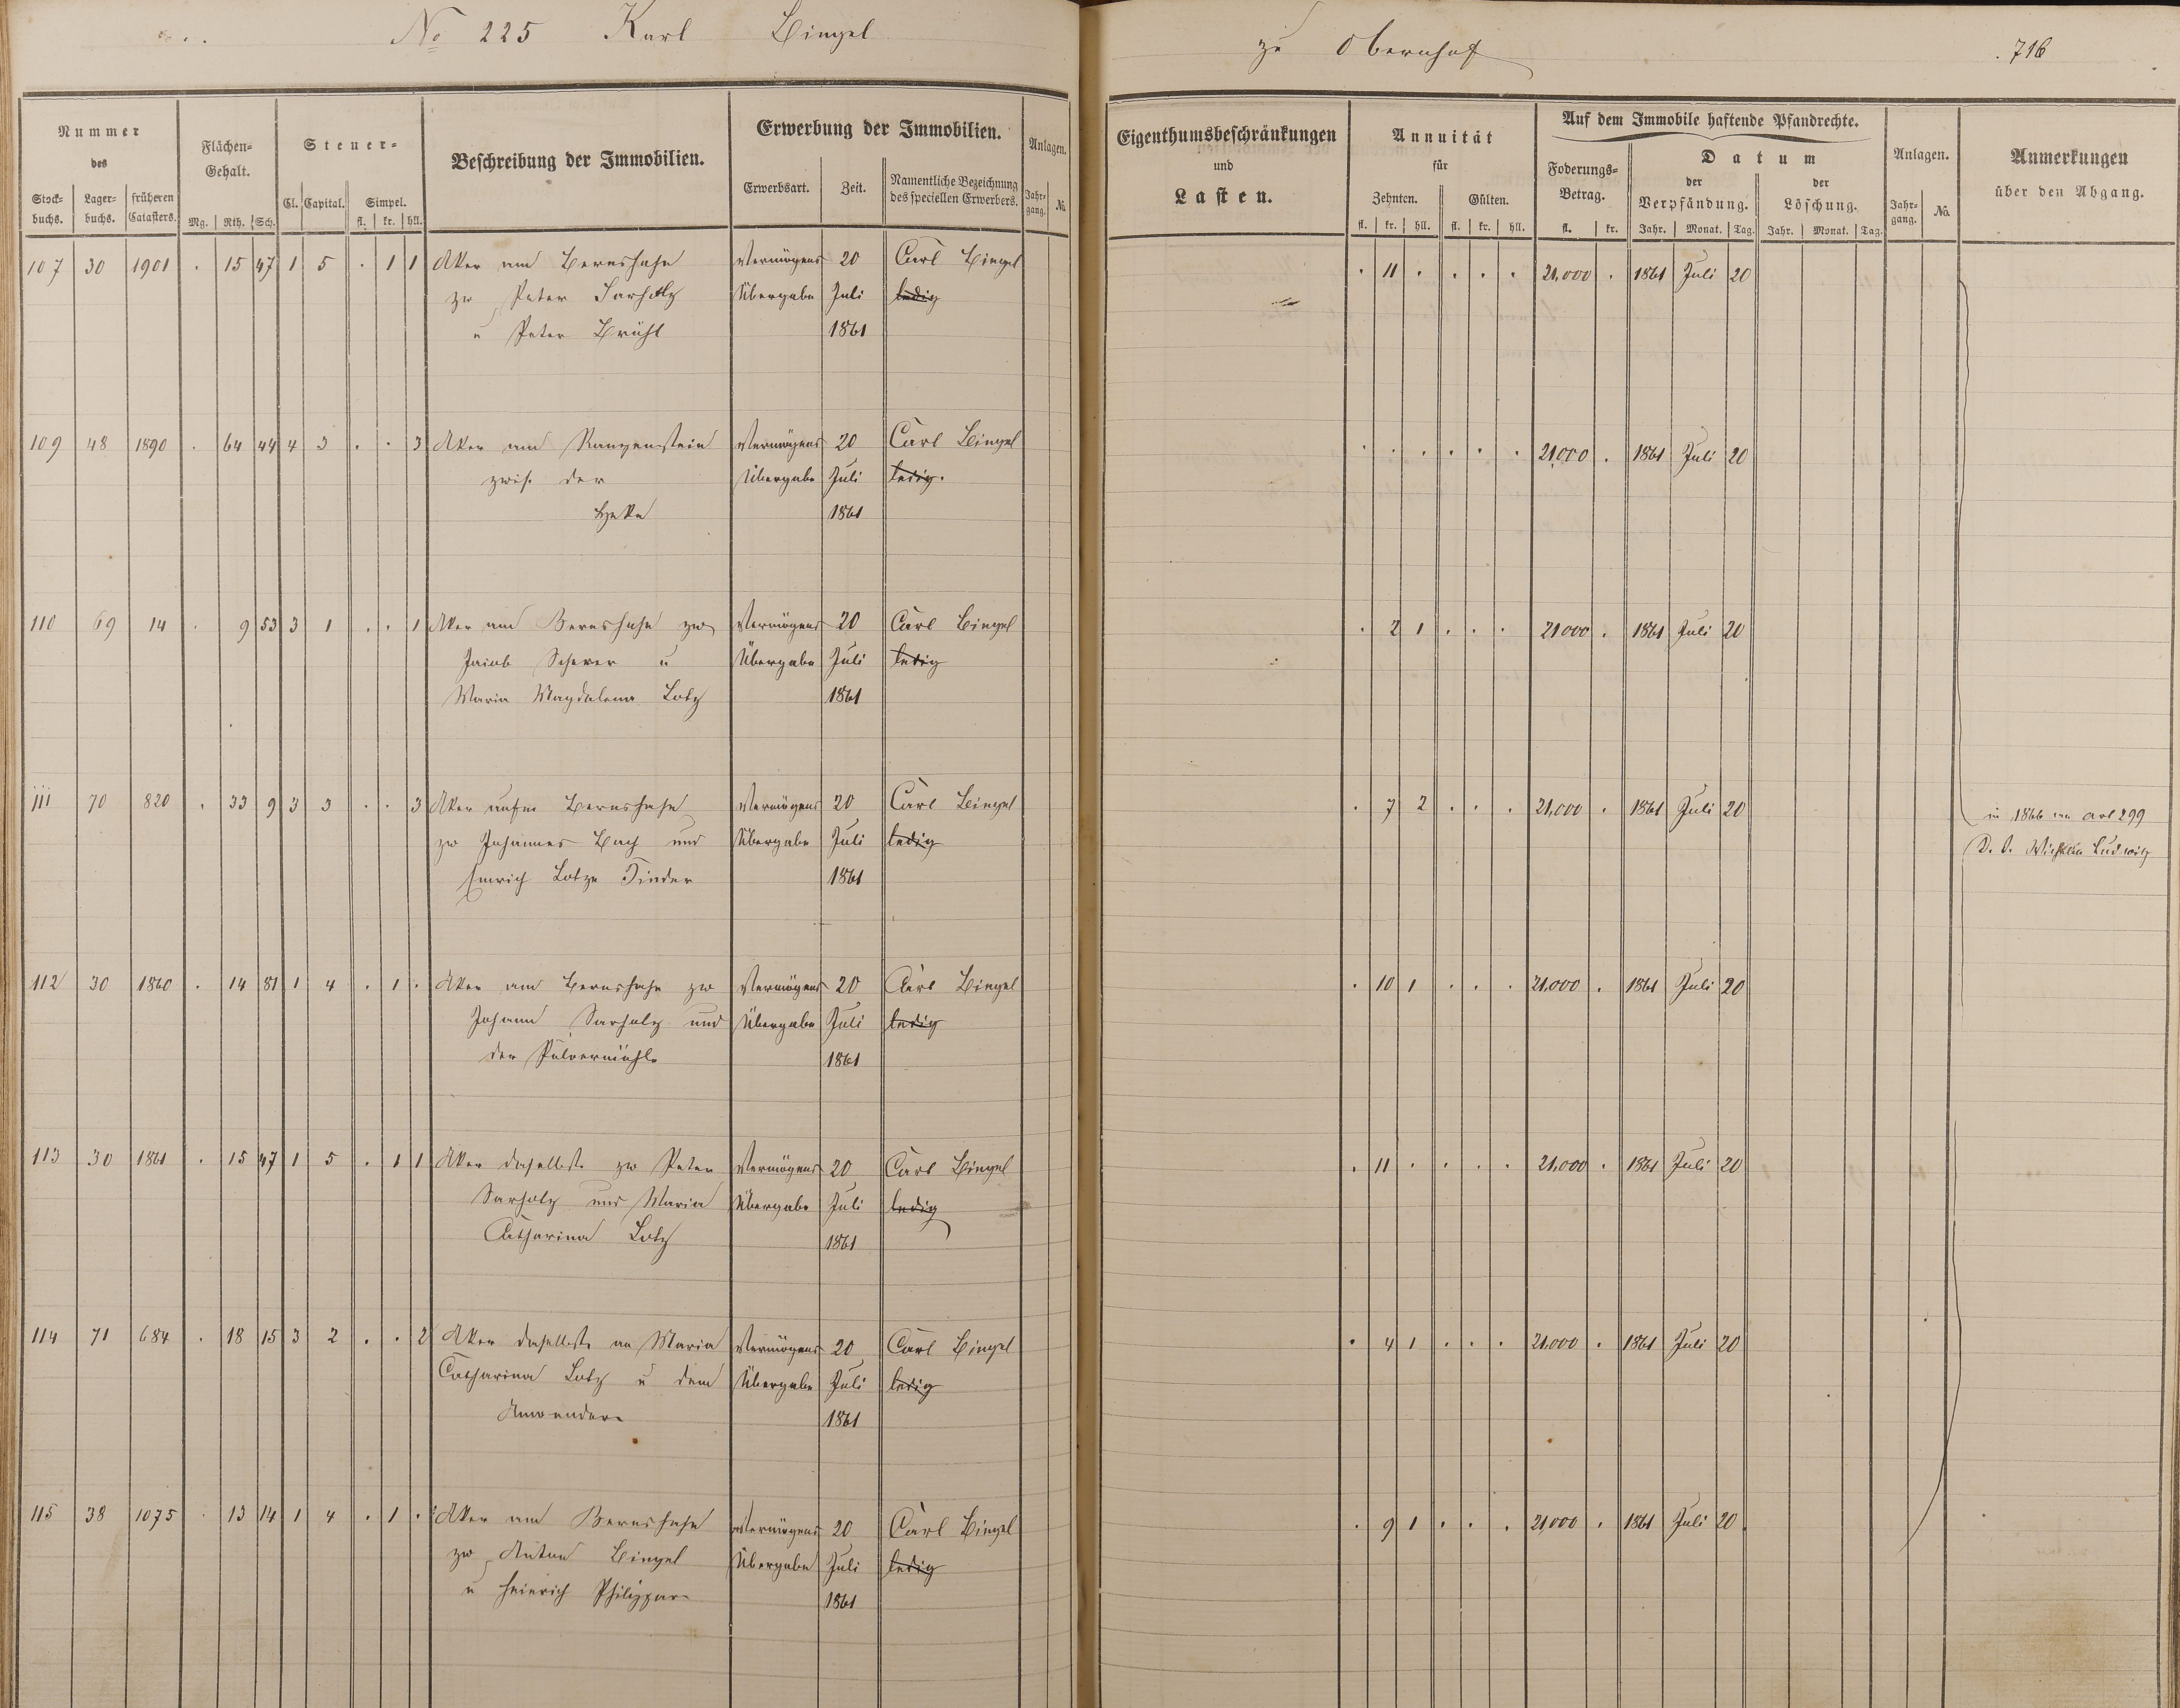 No 225 Karl Bingel
zu Obernhof
716
Nummer
des
Stock-
buchs.
Lager-
buchs.
früheren
Catasters.
Flächen-
Gehalt.
Mg. Rth. Sch.
Steuer-
Cl. Capital. Simpel.
fl. kr. hll.
Beschreibung der Immobilien.
Erwerbung der Immobilien.
Erwerbsart. Zeit. Namentliche Bezeichnung
des speciellen Erwerbers.
Anlagen.
Jahr-
gang. No.
Eigenthumsbeschränkungen
und
Lasten.
Annuität
für
Zehnten. Gülten.
fl. kr. hll. fl. kr. hll.
Auf dem Immobile haftende Pfandrechte.
Foderungs-
Betrag.
fl. kr.
Datum
der
Verpfändung.
der
Löschung.
Jahr. Monat. Tag. Jahr. Monat. Tag.
Anlagen.
Jahr-
gang. No.
Anmerkungen
über den Abgang.
107 30 1901 . 15 47 1 5 . 1 1 Aker am Bernshahn Vermögens 20 Carl Bingel . 11 . . . . 21,000 . 1861 Juli 20
zw Peter Sarholz Übergabe Juli ledig
u Peter Brühl 1861
109 48 1890 . 64 44 4 3 . . 3 Aker am Rangenstein Vermögens 20 Carl Bingel . . . . . . 21,000 . 1861 Juli 20
zwis. der Übergabe Juli ledig.
Heke 1861
110 69 14 . 9 53 3 1 . . 1 Aker am Bernshahn zw Vermögens 20 Carl Bingel . 2 1 . . . 21000 . 1861 Juli 20
Jacob Scherer u Übergabe Juli ledig
Maria Magdalena Lotz 1861
111 70 820 . 33 9 3 3 . . 3 Aker aufm Bernshahn Vermögens 20 Carl Bingel . 7 2 . . . 21,000 . 1861 Juli 20
zw Johannes Bach und Übergabe Juli ledig
Emrich Lotze Kinder 1861
in 1866 an art 299
Ludwig
112 30 1860 . 14 81 1 4 . 1 . Aker am Bernshahn zw Vermögens 20 Carl Bingel . 10 1 . . . 21.000 . 1861 Juli 20
Johann Sarholz und Übergabe Juli ledig
der Pulvermühle 1861
113 30 1861 . 15 47 1 5 . 1 1 Aker daselbst zw Peter Vermögens 20 Carl Bingel . 11 . . . . 21.000 . 1861 Juli 20
Sarholz und Maria Übergabe Juli ledig
Catharina Lotz 1861
114 71 684 . 18 15 3 2 . . 2 Aker daselbst an Maria Vermögens 20 Carl Bingel . 4 1 . . . 21.000 . 1861 Juli 20
Catharina Lotz u dem Übergabe Juli ledig
Anwender 1861
115 38 1075 . 13 14 1 4 . 1 . Aker am Bernshahn Vermögens 20 Carl Bingel . 9 1 . . . 21,000 . 1861 Juli 20
zw Anton Bingel Übergabe Juli ledig
u Heinrich Philippar 1861